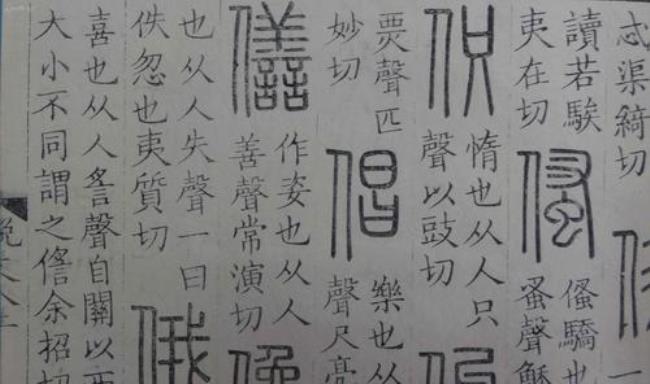 忒渠綺切
讀若騃
夷在切
驕也
蚤聲穌
伿
惰也从人只
聲以豉切
㶾聲匹
妙切
倡
樂也从
聲尺亮
僐
作姿也从人
善聲常演切
也从人失聲一曰
佚忽也夷質切
俄
喜也从人䚻聲自關以西
大小不同謂之余招切
說文八上